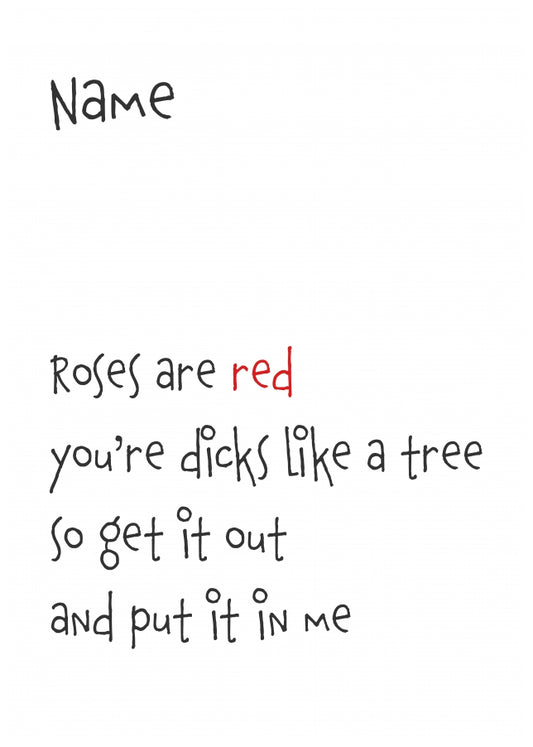 Name
Roses are red
you're dicks like a tree
so get it out
and put it in me